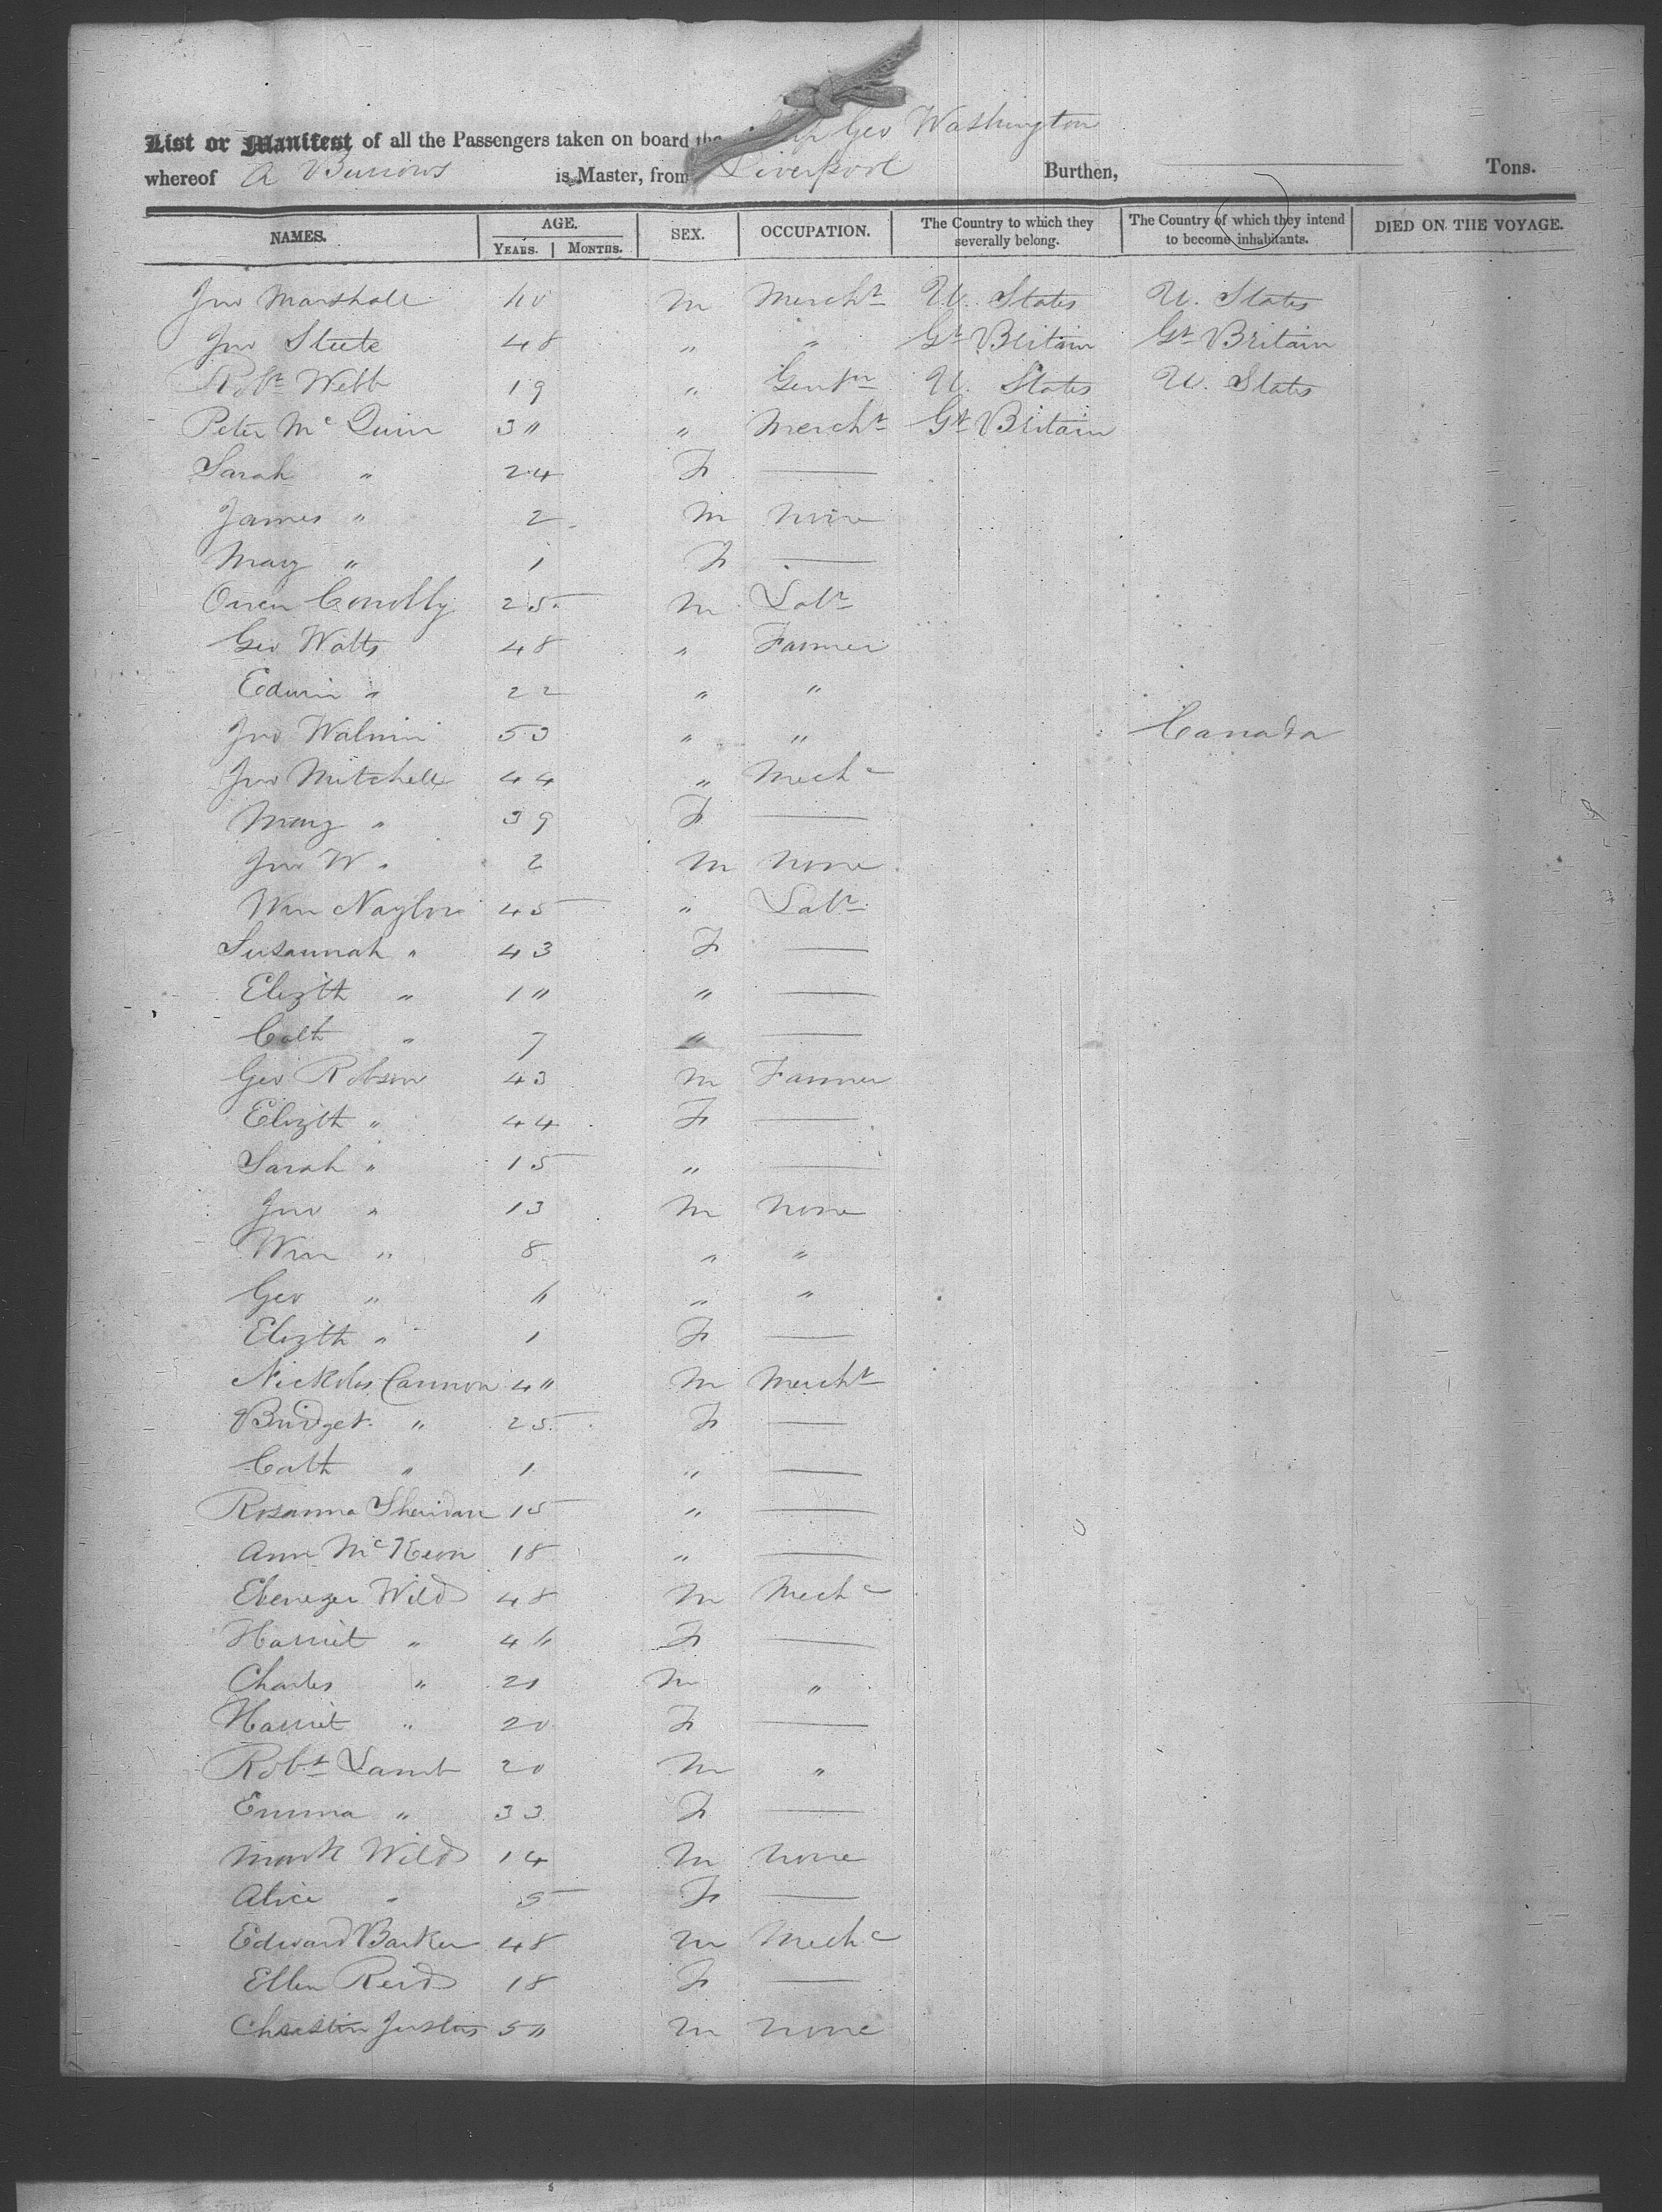 List or Manifest of all the Passengers taken on board the Ship Geo Washington
whereof A Burrows is Master, from Liverpool Burthen, Tons.
NAMES. AGE. YEARS. MONTHS. SEX. OCCUPATION. The Country to which they severally belong. The Country of which they intend to become inhabitants. DIED ON THE VOYAGE.
Jno Marshall 40 M Mercht U. States U. States
Jno Steele 48 " " Gt Britain Gt Britain
Robt Webb 19 " Gentn U. States U. States
Peter McQuin 3" " Mercht Gt Britain
Sarah " 24 F —
James " 2 M None
Mary " 1 F —
Owen Conolly 25 M Labr
Geo Watts 48 " Farmer
Edwin " 22 " "
Jno 53 " " Canada
Jno Mitchell 44 " Mechc
Mary " 39 F —
Jno W " 2 M None
Wm Naylor 45 " Labr
Susannah " 43 F —
Elizth " 1" " —
Cath " 7 " —
Geo Robson 43 M Farmer
Elizth " 44 F —
Sarah " 15 " —
Jno " 13 M None
Wm " 8 " "
Geo " 6 " "
Elizth " 1 F —
Nickolos Cannon 4" M Mercht
Bridget " 25 F —
Cath " 1 " —
Rosanna Sheridan 15 " —
Ann McKeon 18 " —
Ebenezer Wild 48 M Mechc
Harriet " 46 F —
Charles " 21 M "
Harriet " 20 F —
Robt Lamb 20 M "
Emma " 33 F —
Mark Wild 14 M None
Alice " 5 F —
Edward Barker 48 M Mechc
Ellen Reid 18 F —
Christin Justus 5" M None